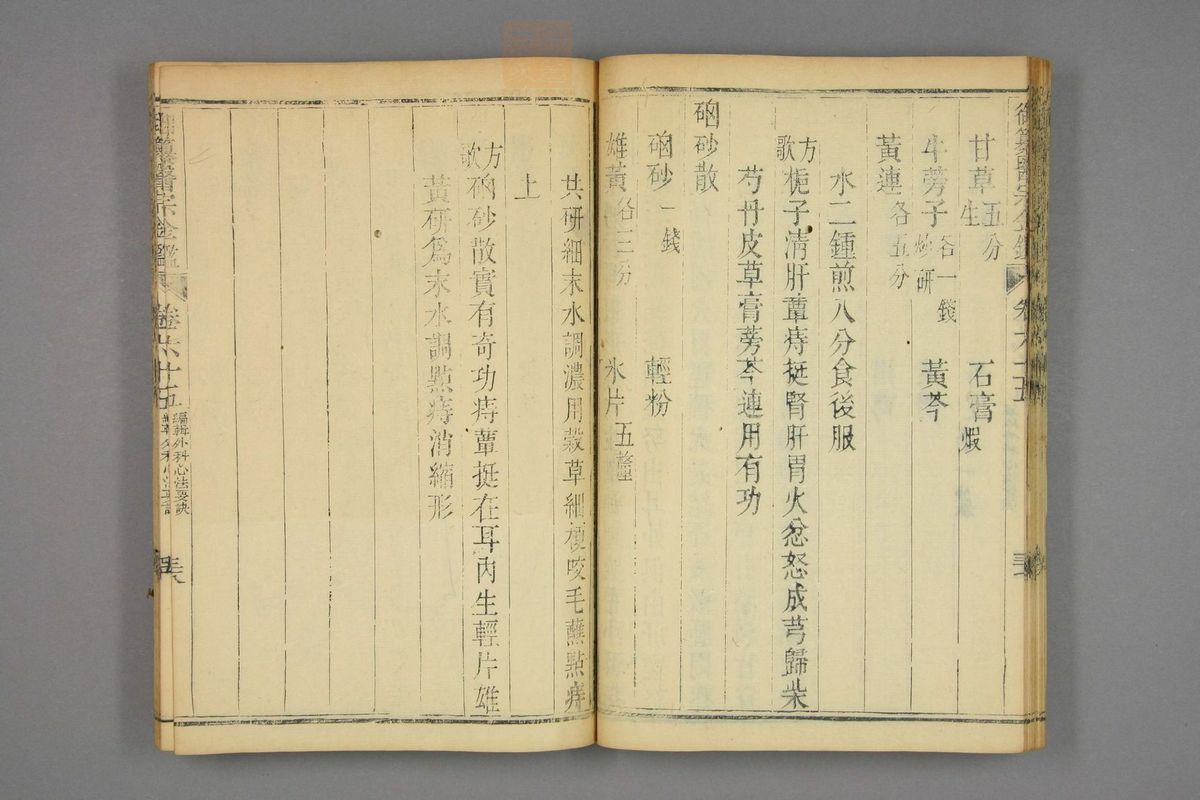 御纂醫宗金鑑 卷六十五
甘草生 五分 石膏煆
牛蒡子炒研 各一錢 黃芩
黃連各五分
水二鍾煎八分食後服
方歌 梔子清肝蕈痔挺腎肝胃火忿怒成芎歸柴
芍丹皮草膏蒡芩連用有功
硇砂散
硇砂一錢 輕粉
雄黃各三分 氷片五釐
共研細末水調濃用穀草細梗咬毛蘸點痔
上
方歌 硇砂散實有奇功痔蕈挺在耳內生輕片雄
黃研爲末水調點痔消縮形
御纂醫宗金鑑 卷六十五 編輯外科心法要訣